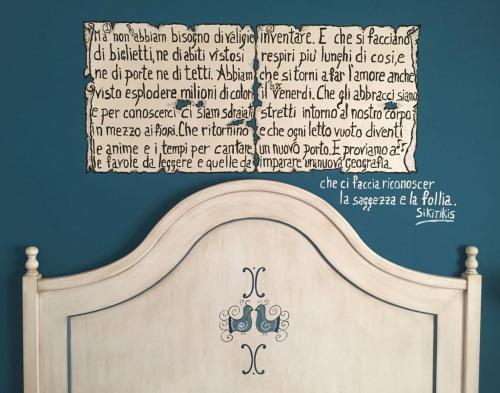 Ma non abbiam bisogno di valigie
di biglietti, ne di abiti vistosi
ne di porte ne di tetti. Abbiam
visto esplodere milioni di colori
e per conoscerci ci siam sdraiati
in mezzo ai Pioppi. Che ritornino
le anime e i tempi per cantare
le favole da leggere e quelle da
inventare. E che si facciano
respiri più lunghi di così, e
che si torni a far l'amore anche
il venerdì. Che gli abbracci siano
stretti intorno al nostro corpo
e che ogni letto vuoto diventi
un nuovo porto. E proviamo a
imparare una nuova geografia
che ci faccia riconoscer
la saggezza e la follia.
SiKiTiKis